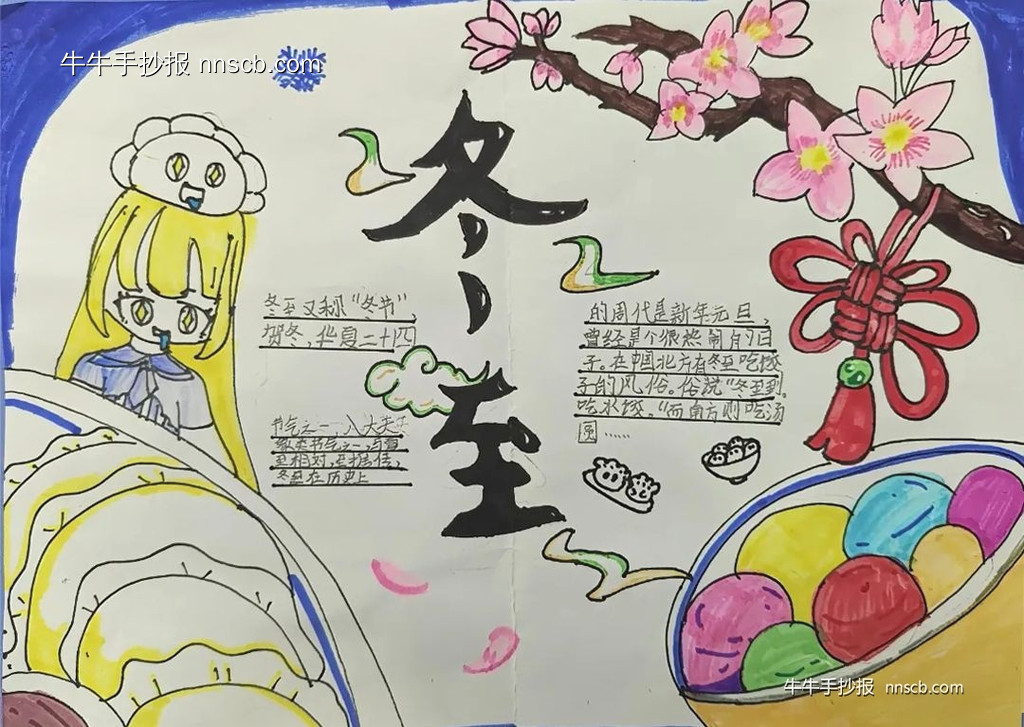 牛牛手抄报 nnscb.com
冬至
冬至又称“冬节”
贺冬，华夏二十四
节气之一、八大天
象类节气之一，与夏
至相对，至据传，
冬至在历史上
的周代是新年元旦，
曾经是个很热闹的日
子。在中国北方有冬至吃饺
子的风俗。俗说“冬至到
吃水饺。”而南方则吃汤
圆……
牛牛手抄报 nnscb.com